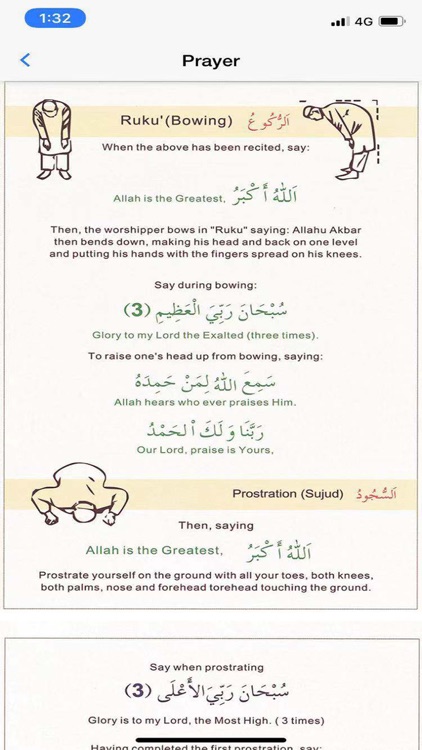 1:32
4G
Prayer
Ruku'(Bowing) اَلرُّكُوعُ
When the above has been recited, say:
Allah is the Greatest, اَللهُ أَكْبَرُ
Then, the worshipper bows in "Ruku" saying: Allahu Akbar
then bends down, making his head and back on one level
and putting his hands with the fingers spread on his knees.
Say during bowing:
سُبْحَانَ رَبِّيَ الْعَظِيمِ (3)
Glory to my Lord the Exalted (three times).
To raise one's head up from bowing, saying:
سَمِعَ اللهُ لِمَنْ حَمِدَهُ
Allah hears who ever praises Him.
رَبَّنَا وَ لَكَ الْحَمْدُ
Our Lord, praise is Yours,
Prostration (Sujud) اَلسُّجُودُ
Then, saying
Allah is the Greatest, اَللهُ أَكْبَرُ
Prostrate yourself on the ground with all your toes, both knees,
both palms, nose and forehead torehead touching the ground.
Say when prostrating
سُبْحَانَ رَبِّيَ الأَعْلَى (3)
Glory is to my Lord, the Most High. ( 3 times)
Having completed the first prostration, say: